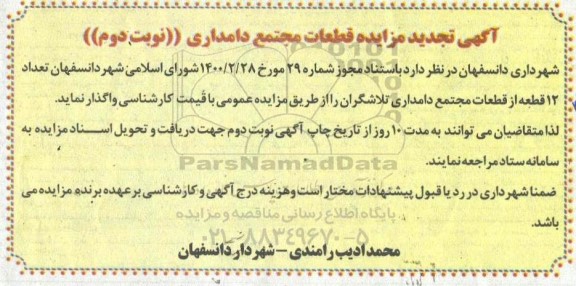 آگهی تجدید مزایده قطعات مجتمع دامداری ((نوبت دوم))
شهرداری دانسفهان در نظر دارد باستناد مجوز شماره ۲۹ مورخ ۱۴۰۰/۲/۲۸ شورای اسلامی شهر دانسفهان تعداد
۱۲ قطعه از قطعات مجتمع دامداری تلاشگران را از طریق مزایده عمومی با قیمت کارشناسی واگذار نماید.
لذا متقاضیان می توانند به مدت ۱۰ روز از تاریخ چاپ آگهی نوبت دوم جهت دریافت و تحویل اسناد مزایده به
سامانه ستاد مراجعه نمایند.
ParsNamadData
ضمنا شهرداری در رد یا قبول پیشنهادات مختار است و هزینه درج آگهی و کارشناسی بر عهده برنده مزایده می
پایگاه اطلاع رسانی مناقصه و مزایده
باشد.
۰۲۱-۸۸۳۴۹۶۷۰-۵
محمد ادیب رامندی - شهردار دانسفهان